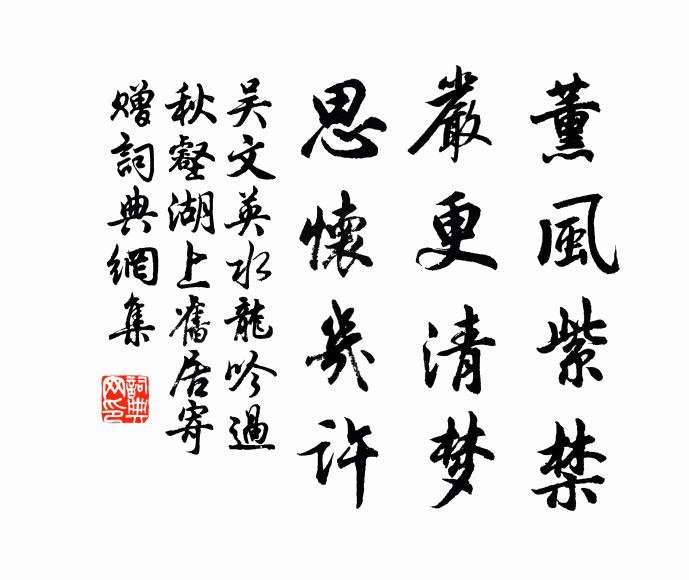 薰風紫禁
嚴更清梦
思懷幾許
吴文英水龍吟過
秋壑湖上舊居寄
贈詞典網集
詞典网印